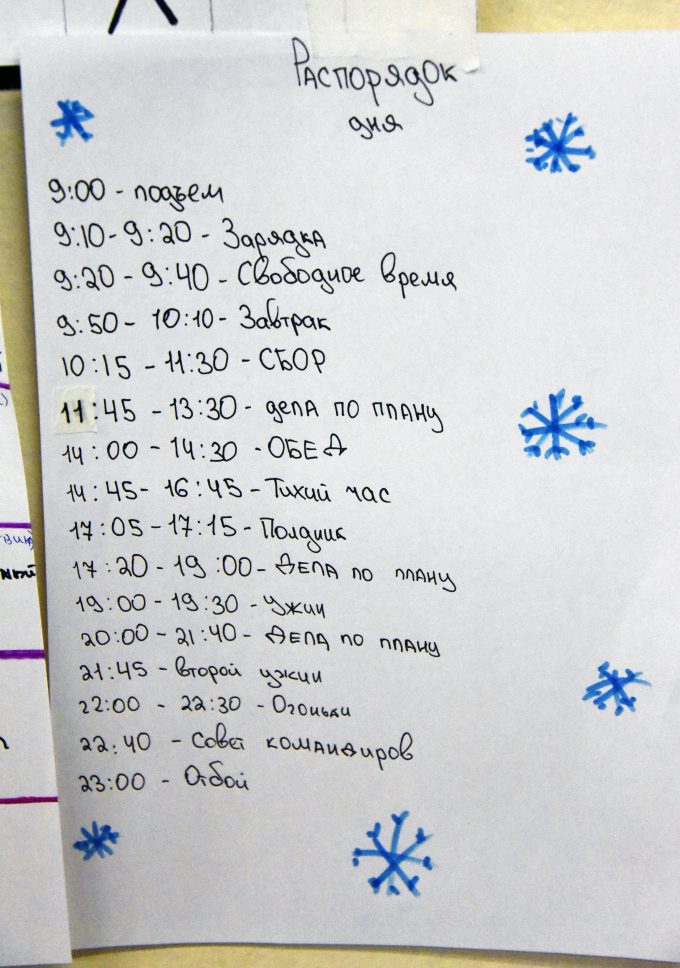 Распорядок
дня
9:00 - подъем
9:10 - 9:20 - Зарядка
9:20 - 9:40 - Свободное время
9:50 - 10:10 - Завтрак
10:15 - 11:30 - СБОР
11:45 - 13:30 - дела по плану
14:00 - 14:30 - ОБЕД
14:45 - 16:45 - Тихий час
17:05 - 17:15 - Полдник
17:20 - 19:00 - Дела по плану
19:00 - 19:30 - Ужин
20:00 - 21:40 - Дела по плану
21:45 - второй ужин
22:00 - 22:30 - Огоньки
22:40 - Совет командиров
23:00 - Отбой